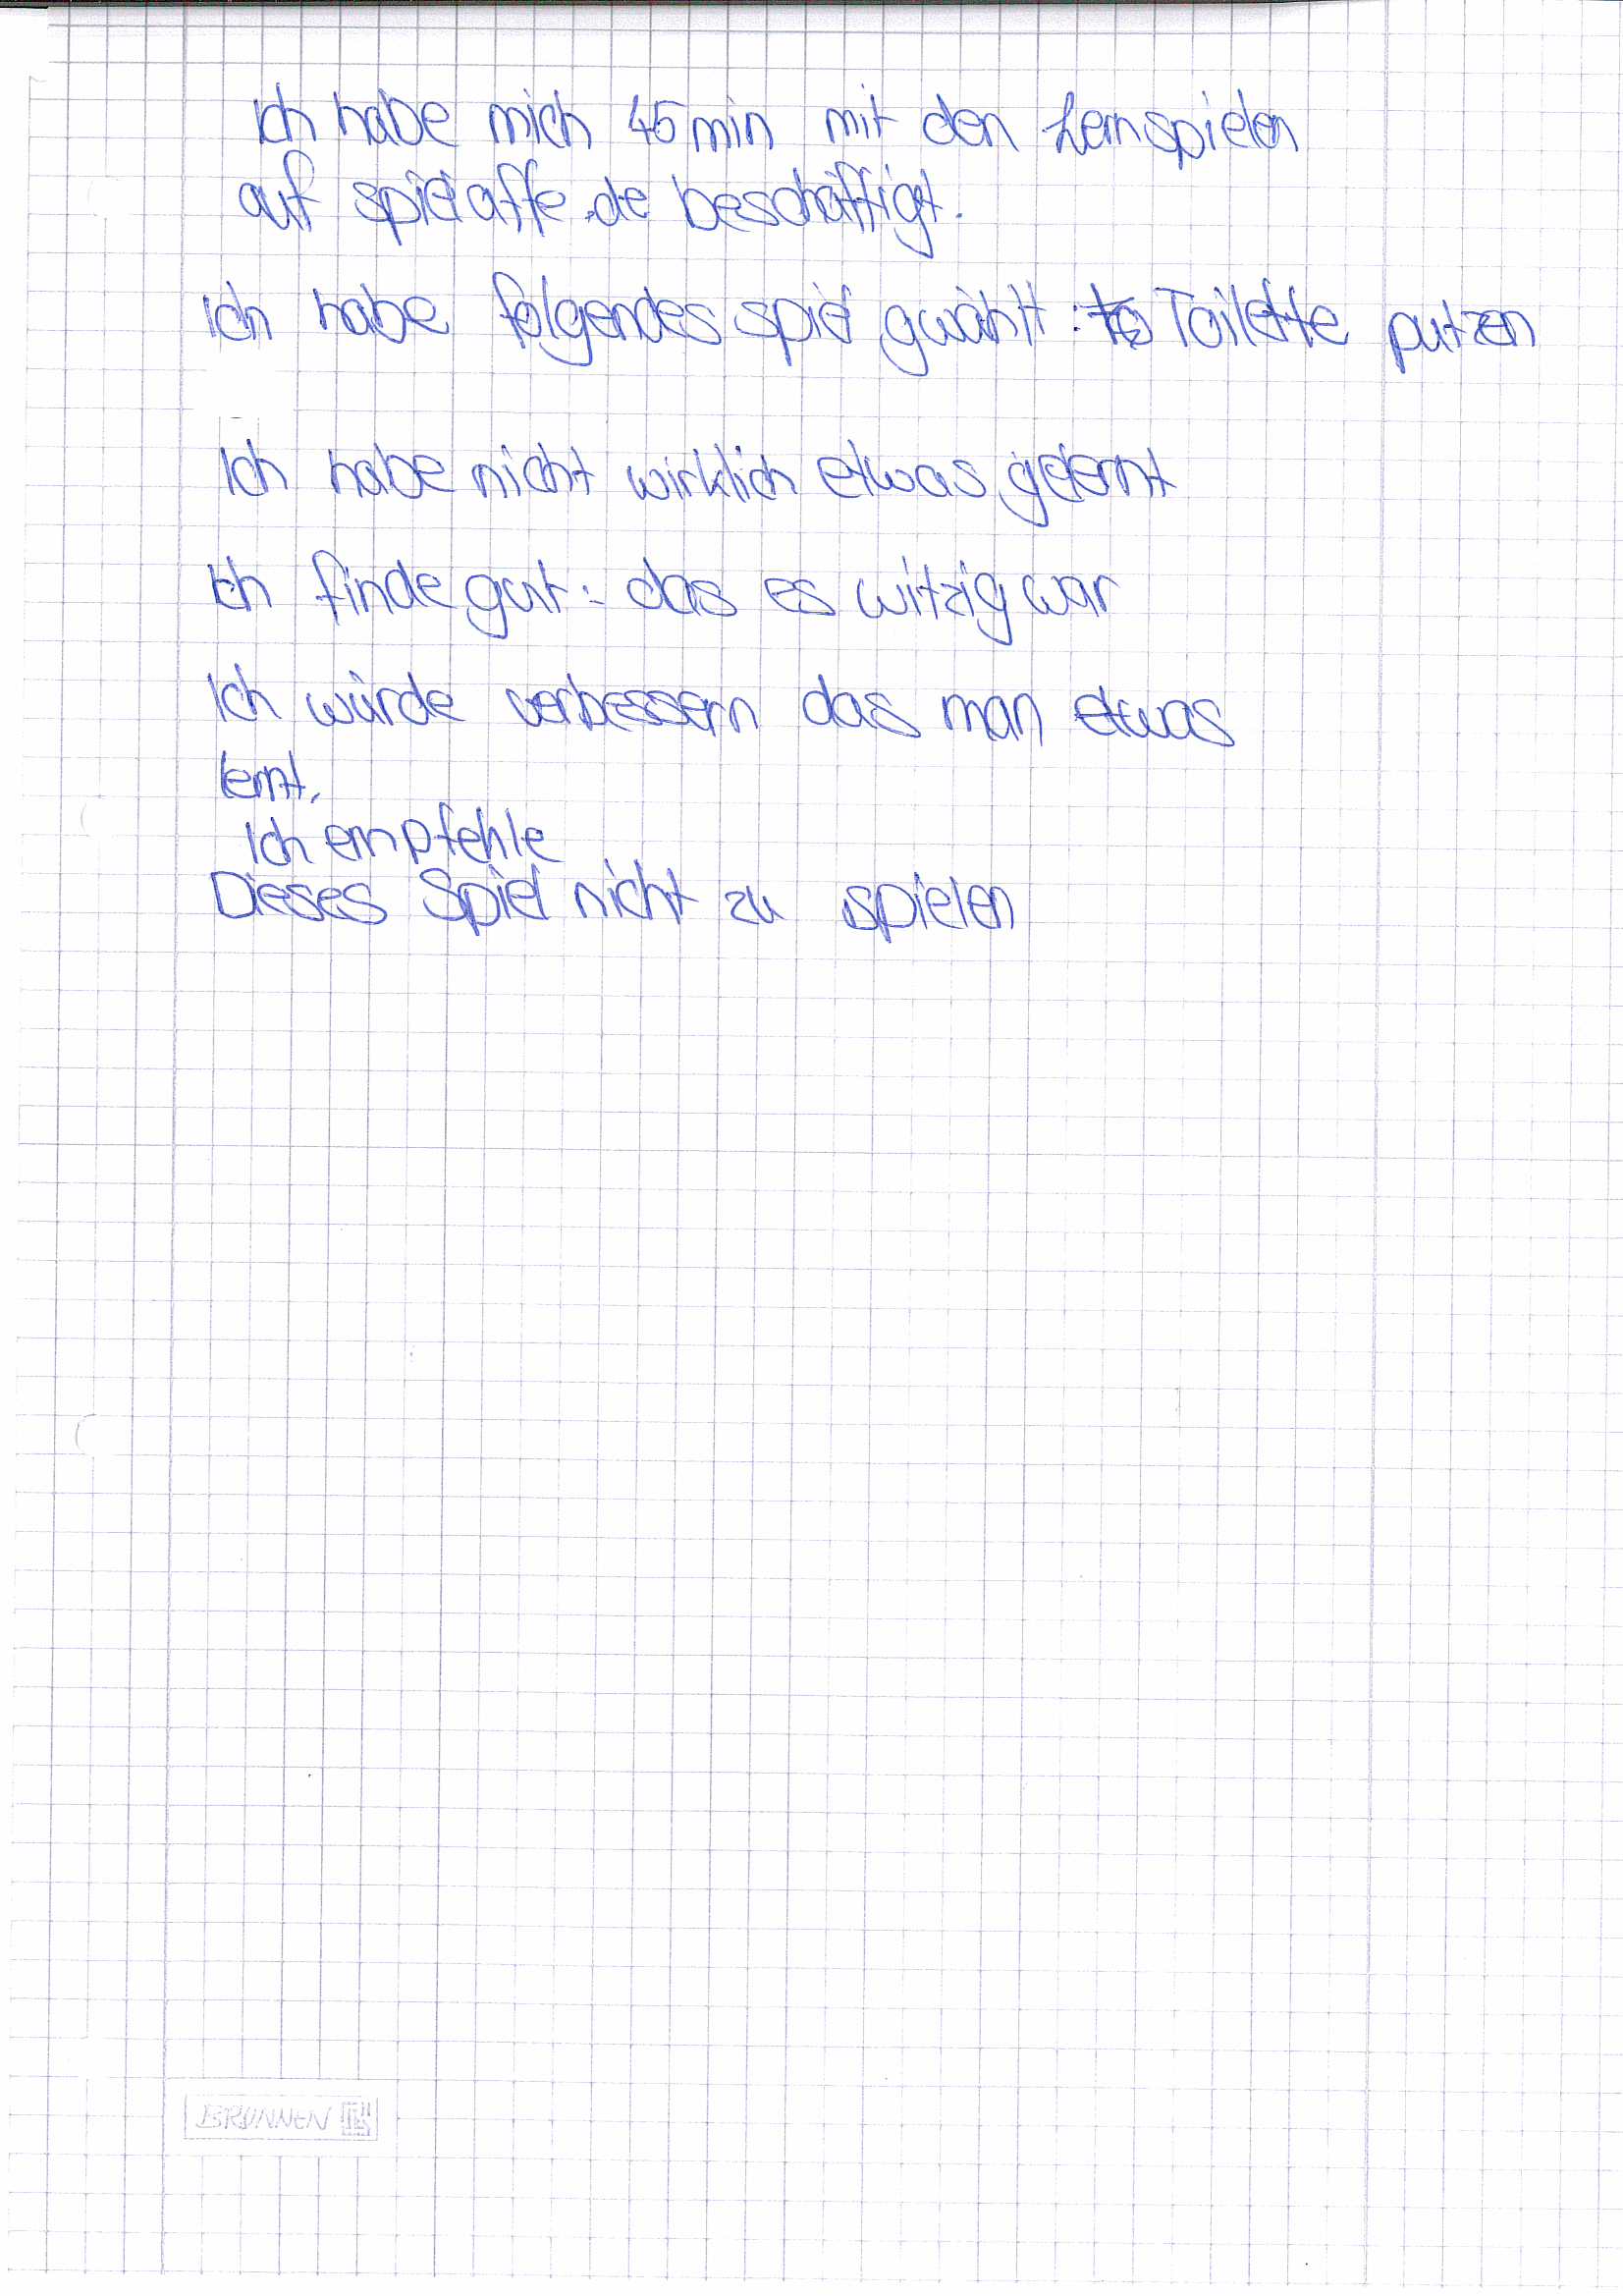 Ich habe mich 45 min mit den Lernspielen
auf spielaffe.de beschäftigt.
Ich habe folgendes spiel gwählt: to Toilette putzen
Ich habe nicht wirklich etwas gelernt
Ich finde gut: das es witzig war
Ich würde verbessern das man etwas
lernt.
Ich empfehle
Dieses Spiel nicht zu spielen
BRUNNEN